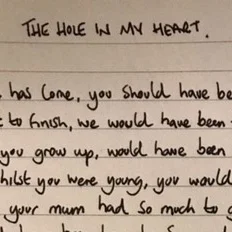 THE HOLE IN MY HEART.
has come, you should have be
to finish, we would have been
you grow up, would have been
hilst you were young, you would
your mum had so much to